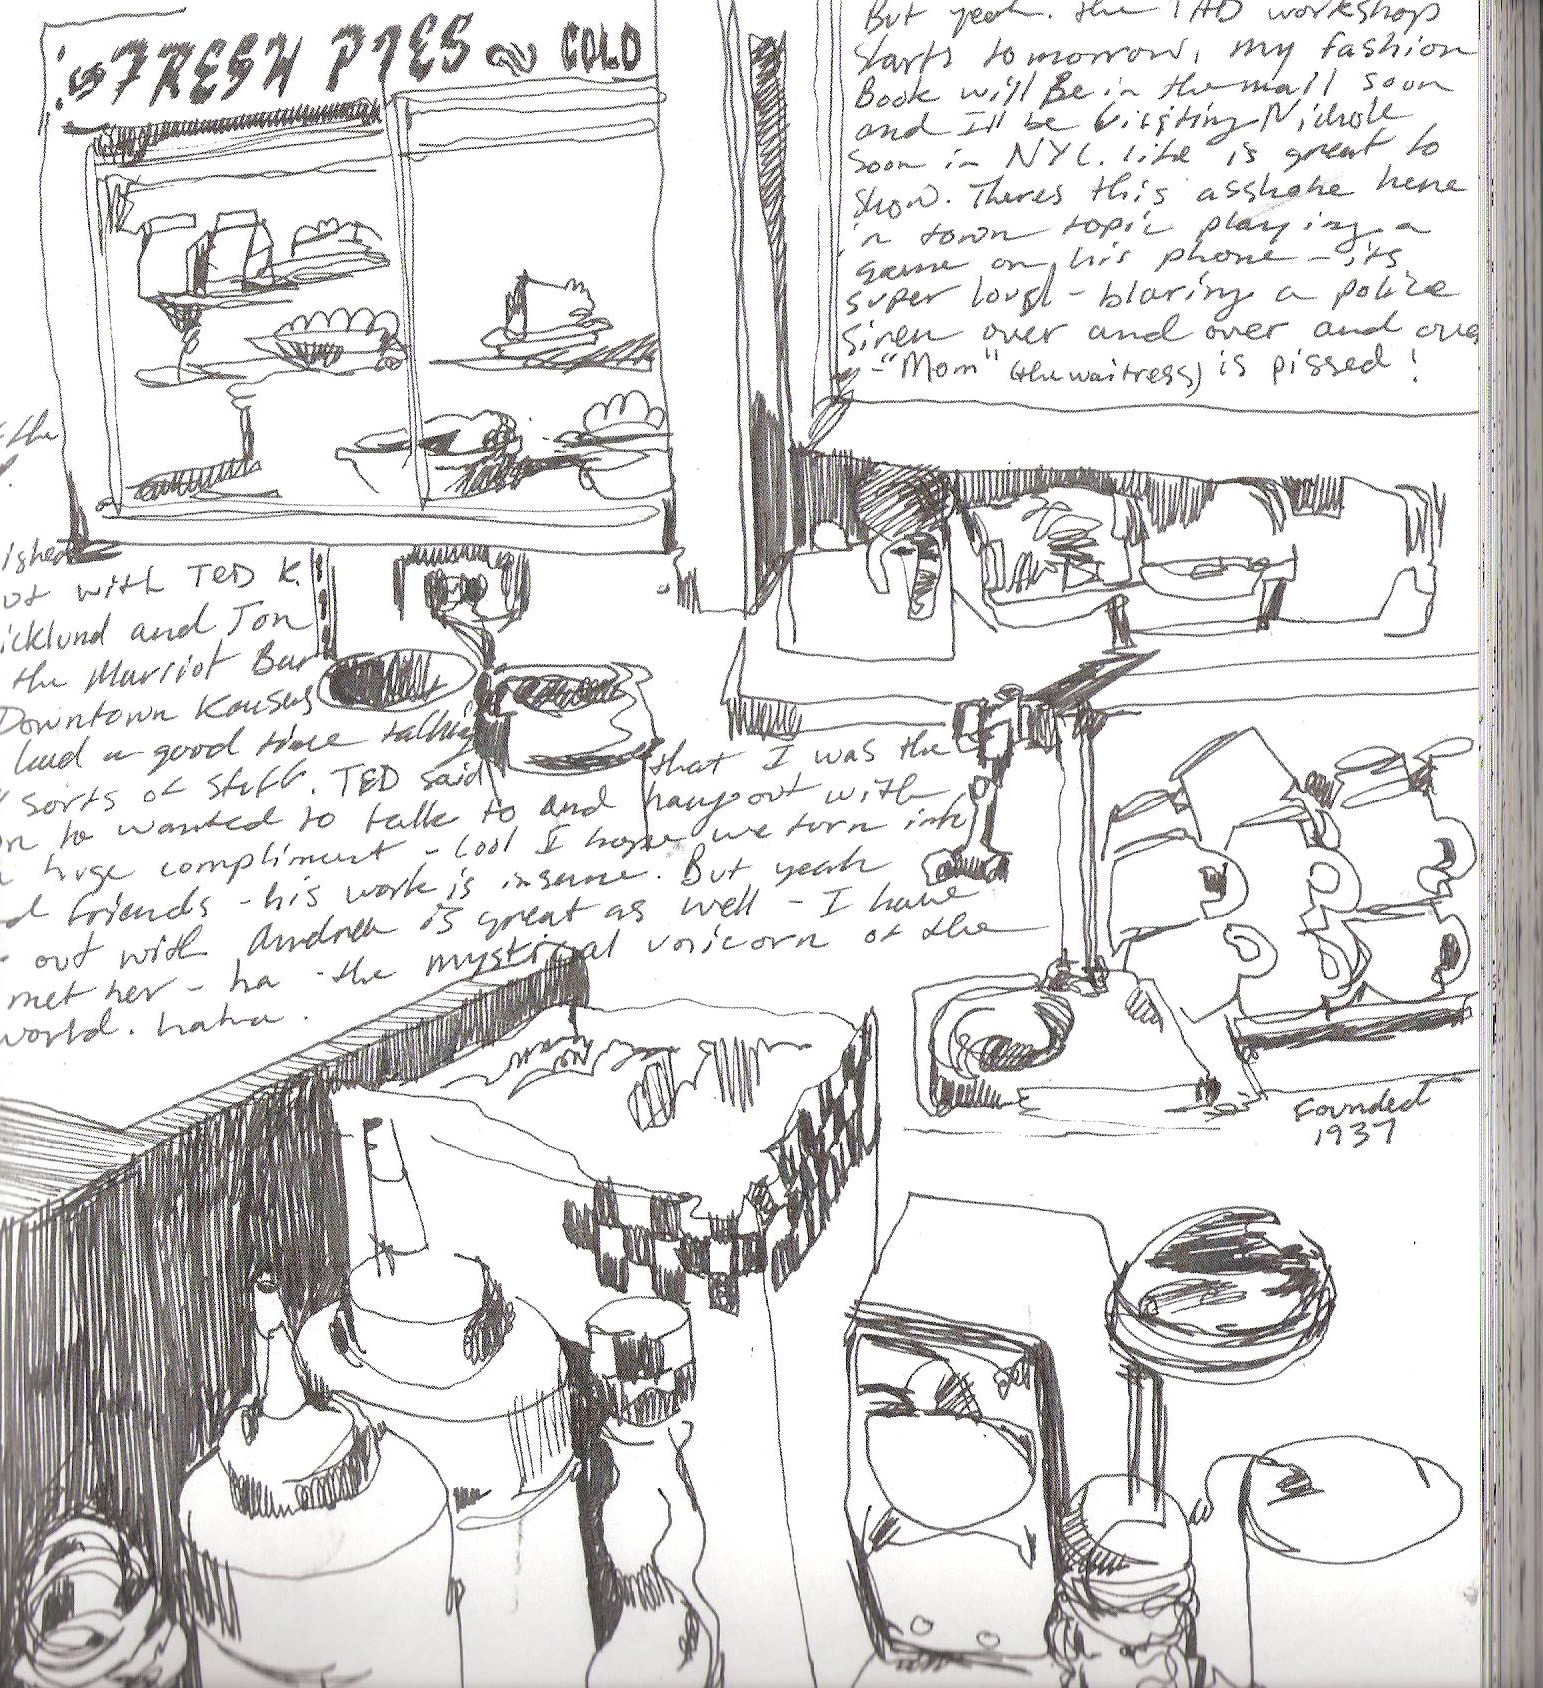 FRESH PIES COLD
But yeah. the TAD workshop
starts tomorrow, my fashion
Book will Be in the mail soon
and I'll be visiting Nichole
soon in NYC. life is great to
show. Theres this asshole here
in town topic playing a
game on his phone - its
super loud - blaring a police
siren over and over and over
- "Mom" (the waitress) is pissed!
the
ished
out with TED K.
icklund and Jon
the Marriot Bar
Downtown Kansas
had a good time talking
sorts of stuff. TED said that I was the
on he wanted to talk to and hang out with
huge compliment - cool I hope we turn into
friends - his work is insane. But yeah
out with Andrea is great as well - I have
met her - ha - the mystical unicorn of the
world. haha.
Founded
1937